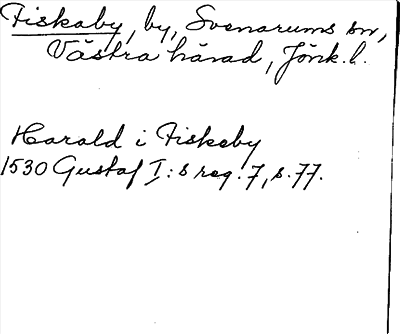 Fiskaby, by, Svenarums sn,
Västra härad, Jönk. l.
Harald i Fiskeby
1530 Gustaf I:s reg. 7, s. 77.